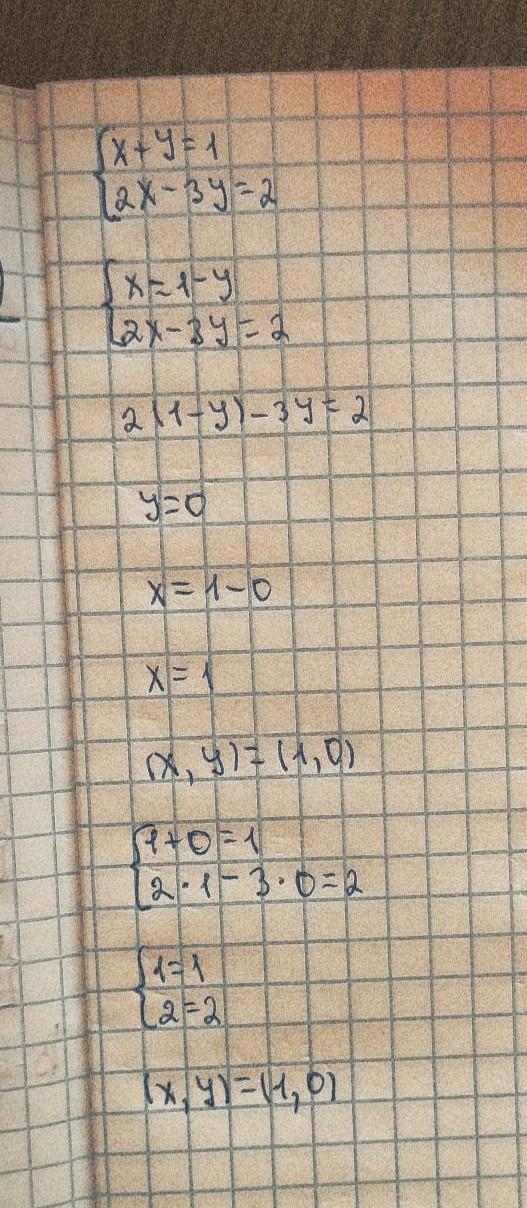 {x+y=1
{2x-3y=2
{x=1-y
{2x-3y=2
2(1-y)-3y=2
y=0
x=1-0
x=1
(x,y)=(1,0)
{1+0=1
{2·1-3·0=2
{1=1
{2=2
(x,y)=(1,0)